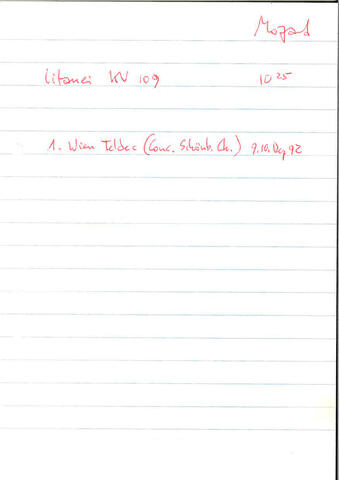 Mozart
Litanei KV 109 10 25
1. Wien Teldec (Conc. Schönb. Ch.) 9.10. Dez 92